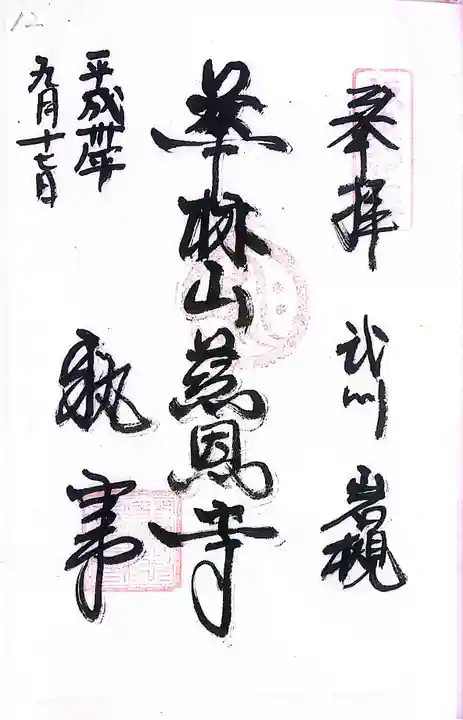 奉拝 武州 岩槻
華林山慈恩寺
執事
平成卅年
九月十七日
12